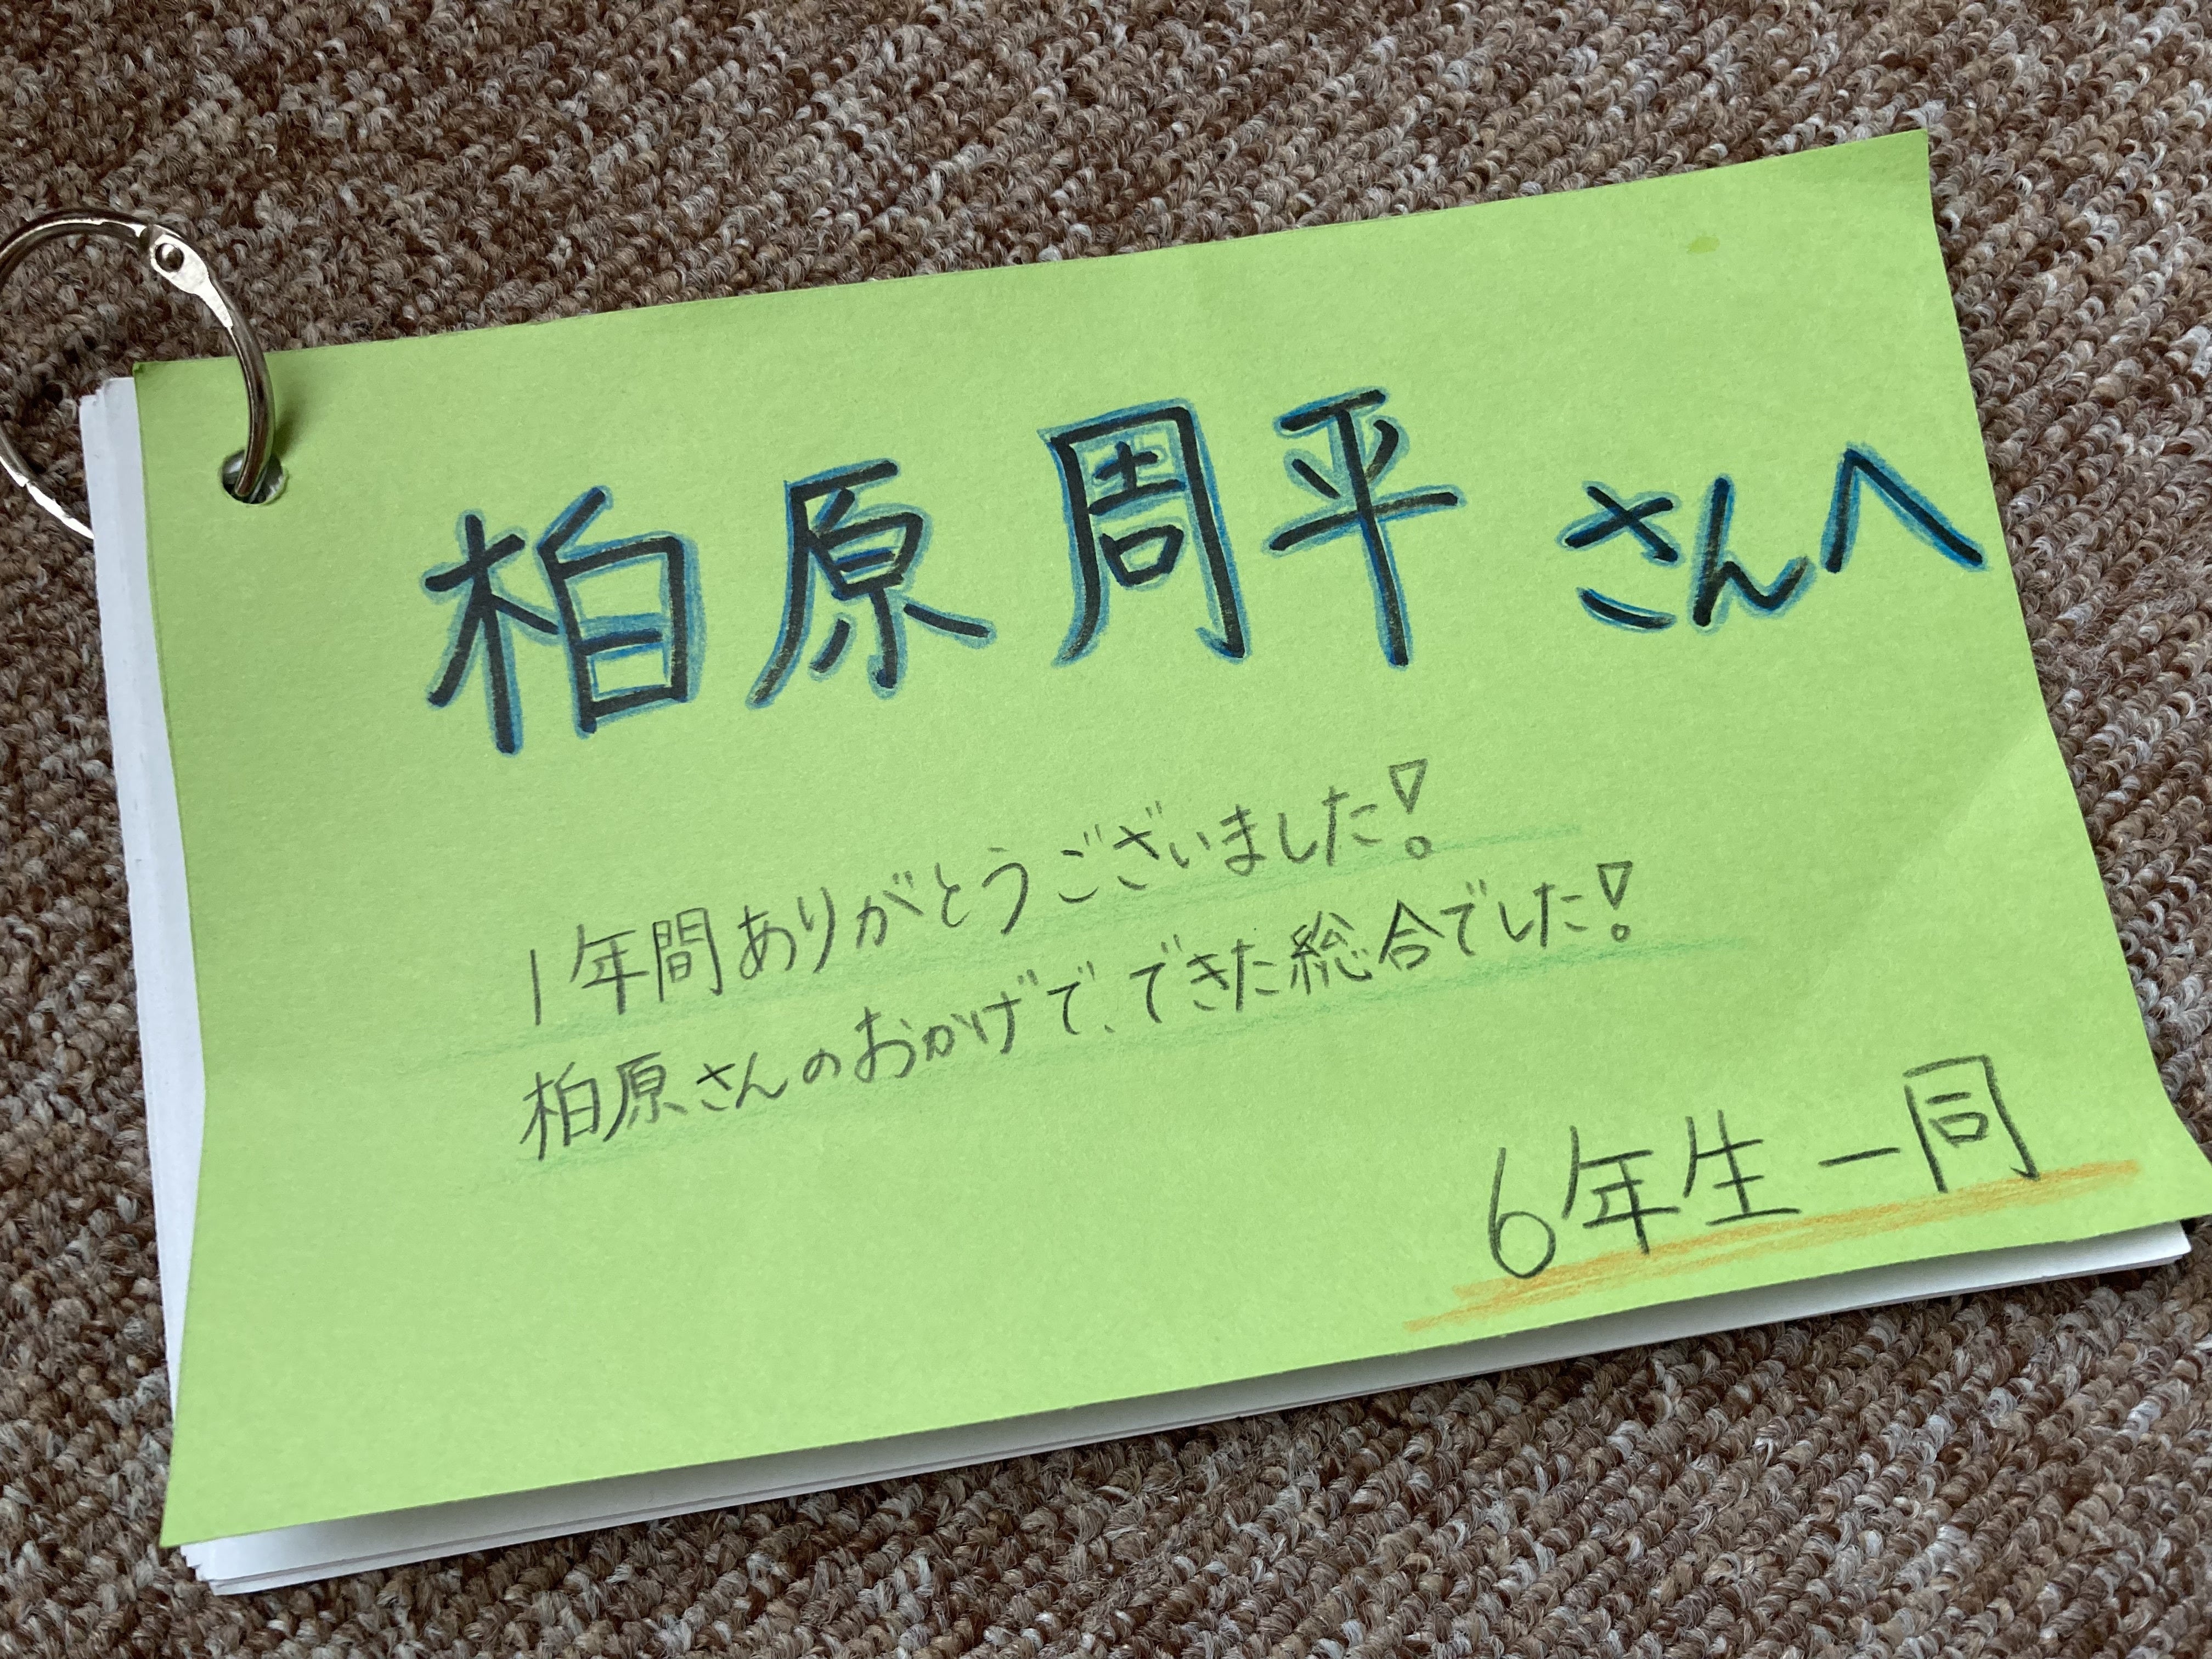 柏原周平さんへ
1年間ありがとうございました！
柏原さんのおかげで、できた総合でした！
6年生一同